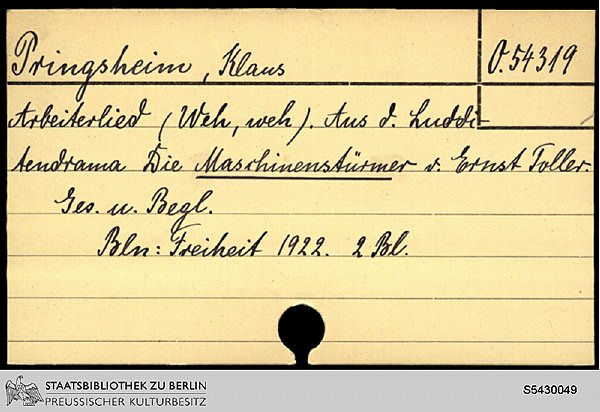 Pringsheim, Klaus
O. 54319
Arbeiterlied (Weh, weh). Aus d. Luddi-
tendrama Die Maschinenstürmer v. Ernst Toller.
Ges. u. Begl.
Bln: Freiheit 1922. 2 Bl.
STAATSBIBLIOTHEK ZU BERLIN
PREUSSISCHER KULTURBESITZ
S5430049